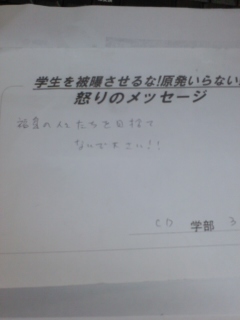 学生を被曝させるな!原発いらない
怒りのメッセージ
福島の人たちを見捨て
ないで下さい!!
学部 3